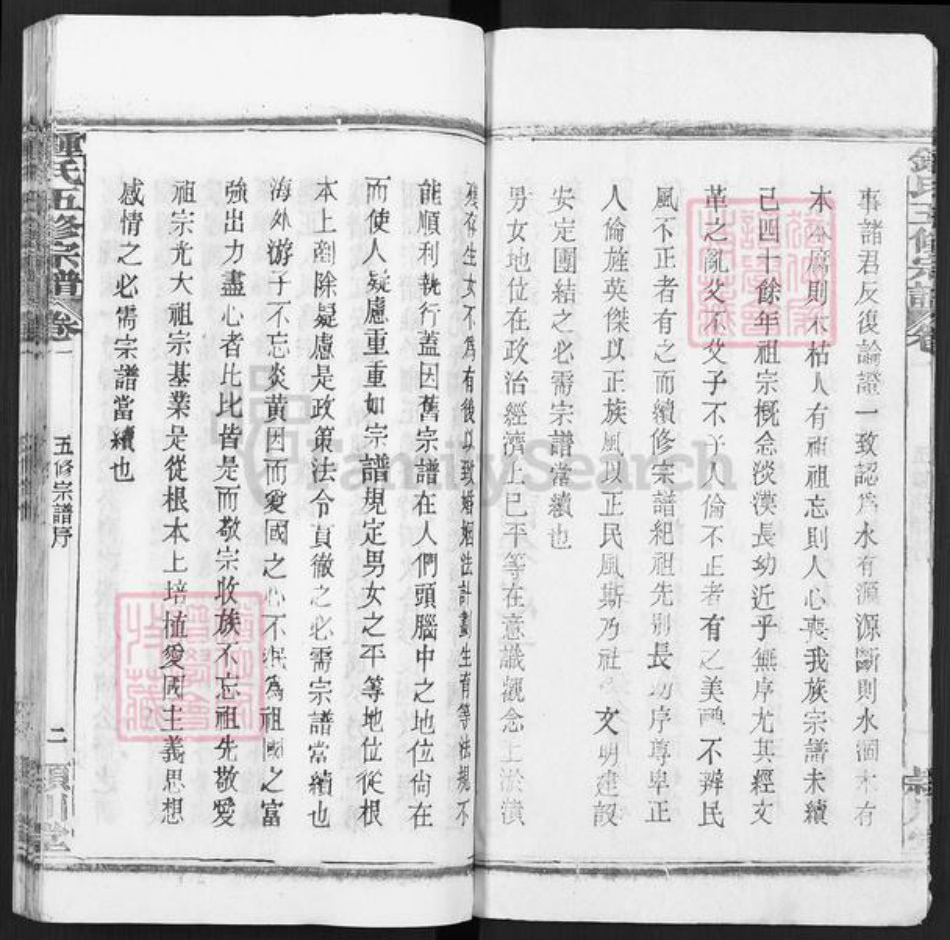 事諸君反復論證一致認為水有源源斷則水涸木有
本本腐則木枯人有祖祖忘則人心喪我族宗譜未續
已四十餘年祖宗概念淡漠長幼近乎無序尤其經文
革之亂父不父子不子人倫不正者有之美醜不辨民
風不正者有之而續修宗譜紀祖先別長幼序尊卑正
人倫旌英傑以正族風以正民風斯乃社文明建設
安定團結之必需宗譜當續也
男女地位在政治經濟上已平等在意識觀念上淤漬
殘存生女不為有後以致婚姻法計劃生育等法規不
能順利執行蓋因舊宗譜在人們頭腦中之地位尚在
而使人疑慮重重如宗譜規定男女之平等地位從根
本上剷除疑慮是政策法令貫徹之必需宗譜當續也
海外游子不忘炎黃因而愛國之心不泯為祖國之富
強出力盡心者比比皆是而敬宗收族不忘祖先敬愛
祖宗光大祖宗基業是從根本上培植愛國主義思想
感情之必需宗譜當續也
鍾氏五修宗譜 卷一
五修宗譜序
二
潁川堂
FamilySearch